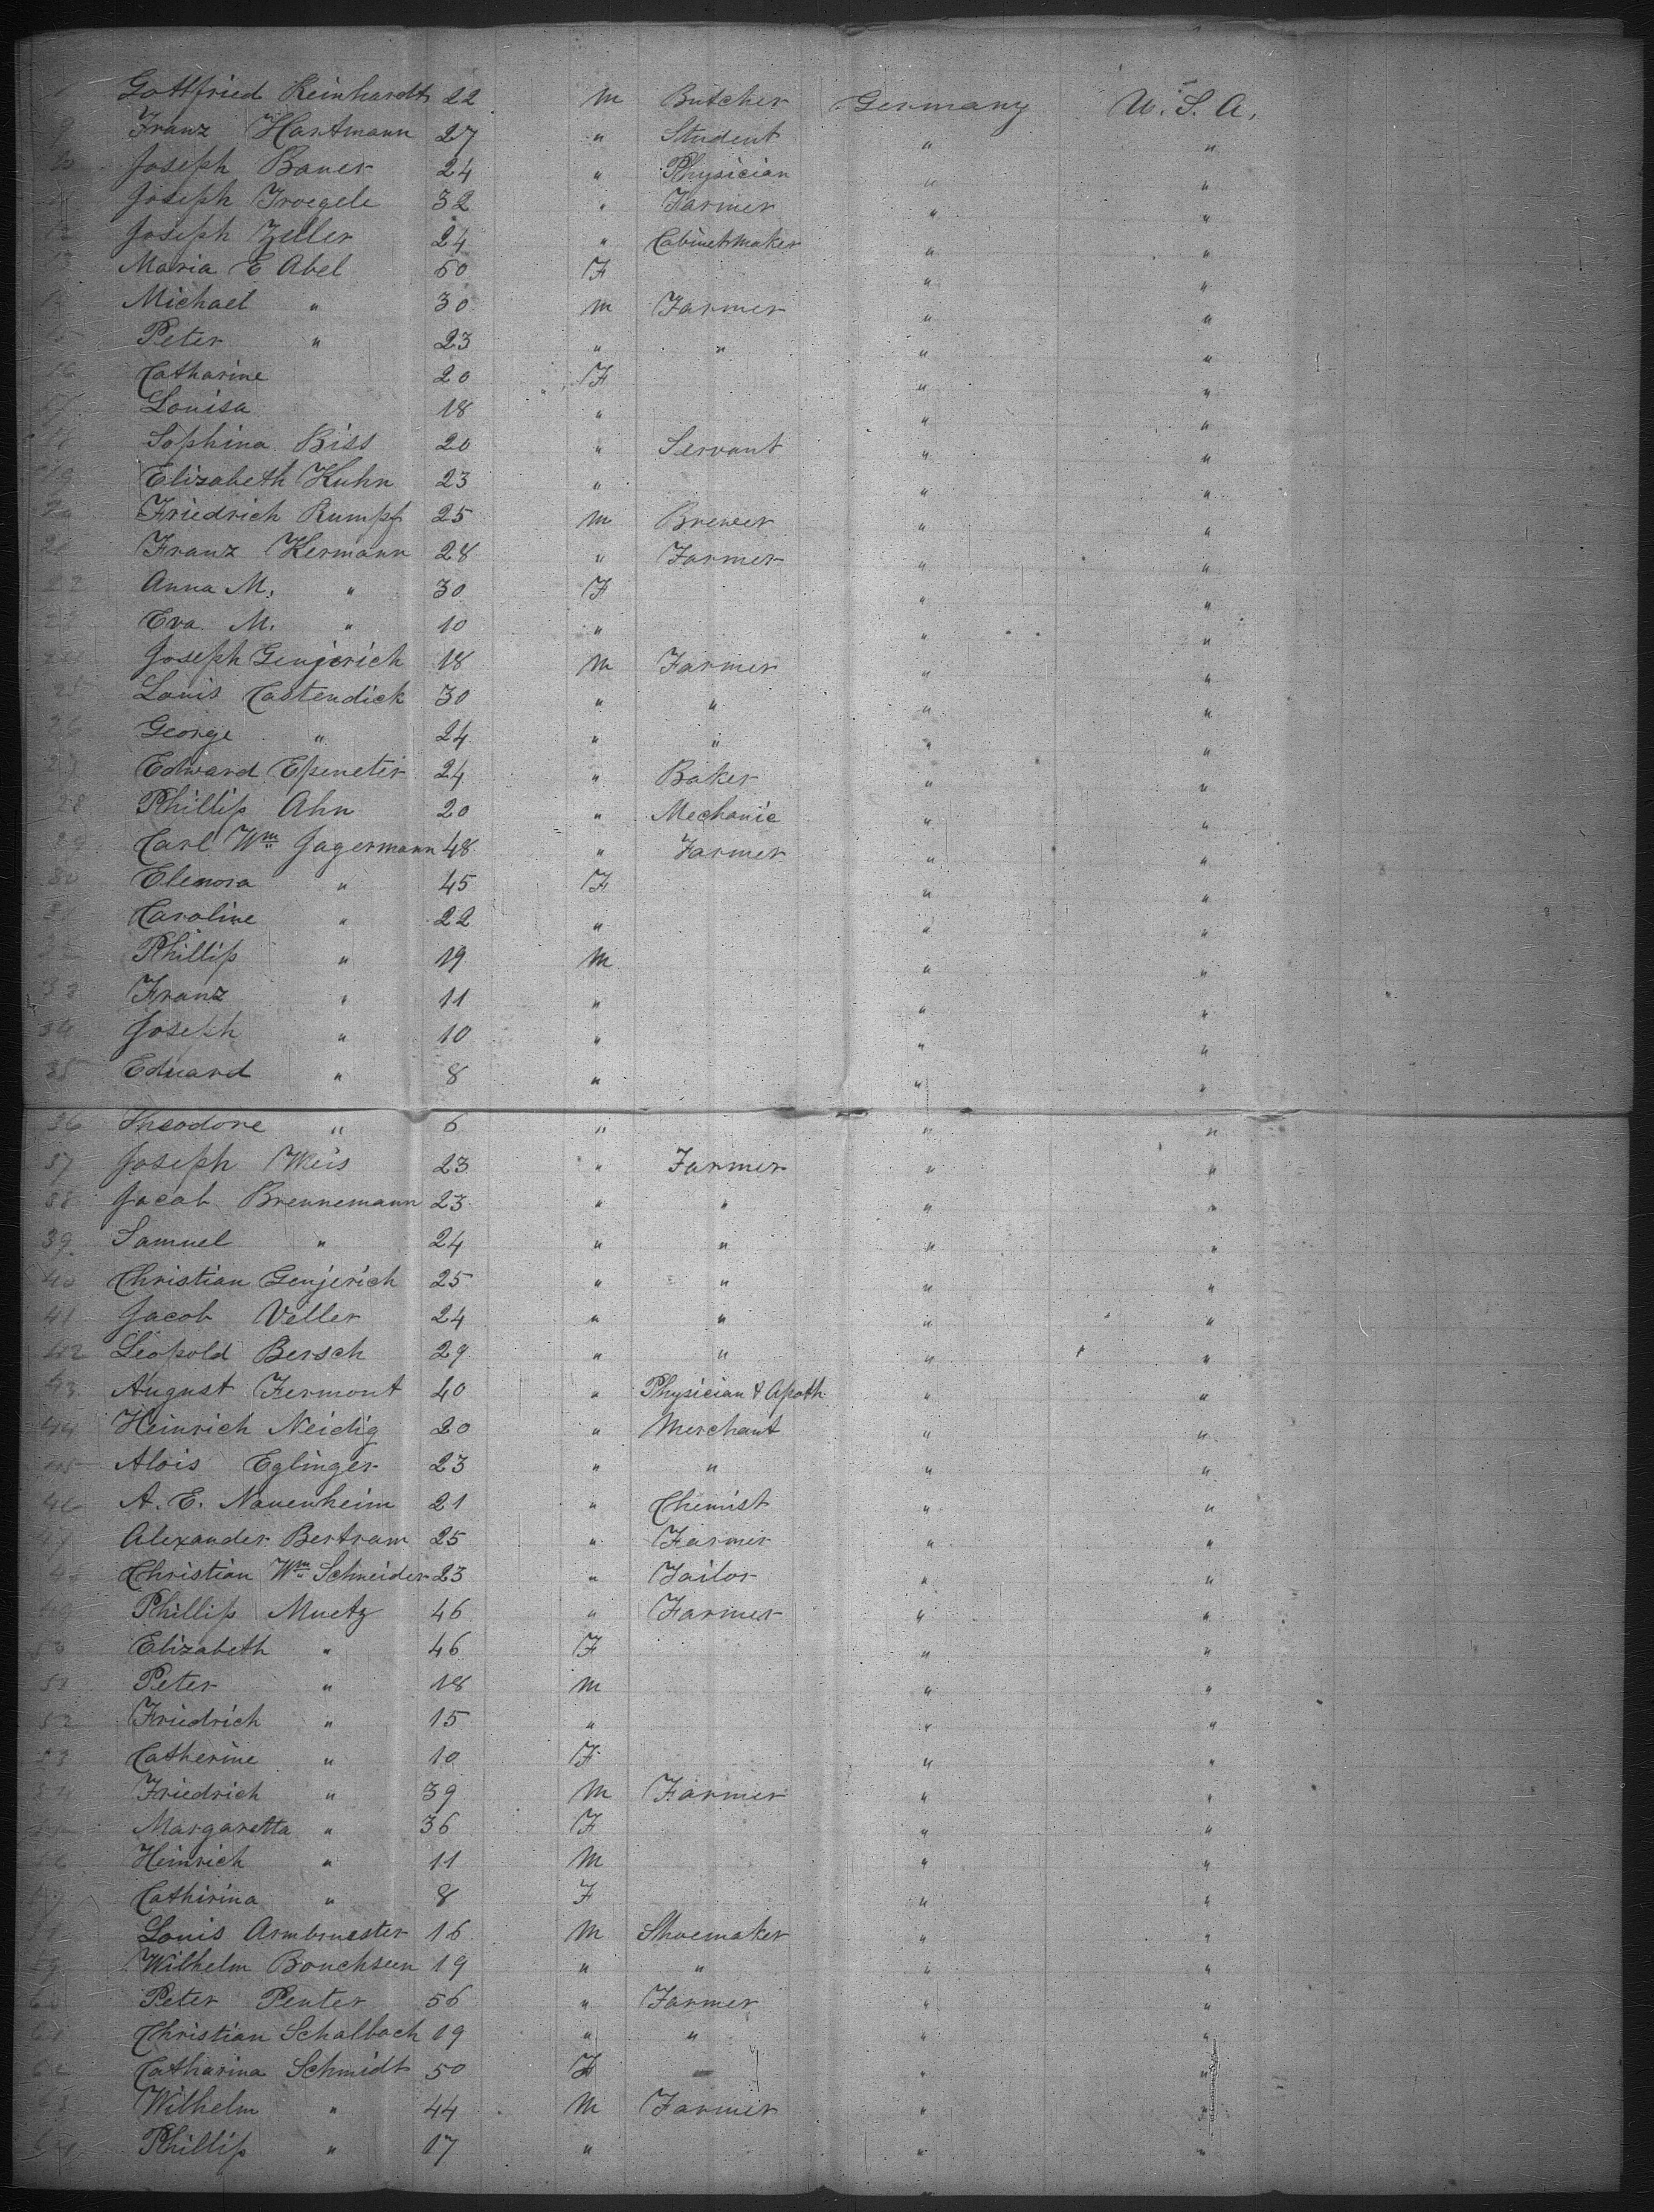 Gottfried Reinhardt 22 M Butcher Germany U.S.A.
9 Franz Hartmann 27 " Student " "
10 Joseph Bauer 24 " Physician " "
11 Joseph Troegele 32 " Farmer " "
12 Joseph Zeller 24 " Cabinetmaker " "
13 Maria E Abel 60 F " "
14 Michael " 30 M Farmer " "
15 Peter " 23 " " " "
16 Catharine 20 F " "
17 Louisa 18 " " "
18 Sophina Biss 20 " Servant " "
19 Elizabeth Kuhn 23 " " "
20 Friedrich Rumpf 25 M Brewer " "
21 Franz Hermann 28 " Farmer " "
22 Anna M. " 30 F " "
23 Eva M. " 10 " " "
24 Joseph Genjerich 18 M Farmer " "
25 Louis Castendick 30 " " " "
26 George " 24 " " " "
27 Edward Epeneter 24 " Baker " "
28 Phillip Ahn 20 " Mechanic " "
29 Carl Wm Jagermann 48 " Farmer " "
30 Elenora " 45 F " "
31 Caroline " 22 " " "
32 Phillip " 19 M " "
33 Franz " 11 " " "
34 Joseph " 10 " " "
35 Eduard " 8 " " "
36 Theodore " 6 " " "
37 Joseph Weis 23 " Farmer " "
38 Jacob Brennemann 23 " " " "
39 Samuel " 24 " " " "
40 Christian Genjerich 25 " " " "
41 Jacob Veller 24 " " " "
42 Leopold Bersch 29 " " " "
43 August Fermont 40 " Physician & Apoth " "
44 Heinrich Neidig 20 " Merchant " "
45 Alois Eglinger 23 " " " "
46 A. E. Nauenheim 21 " Chemist " "
47 Alexander Bertram 25 " Farmer " "
48 Christian Wm Schneider 23 " Tailor " "
49 Phillip Muetz 46 " Farmer " "
50 Elizabeth " 46 F " "
51 Peter " 18 M " "
52 Friedrich " 15 " " "
53 Catherine " 10 F " "
54 Friedrich " 39 M Farmer " "
55 Margaretta " 36 F " "
56 Heinrich " 11 M " "
57 Cathirina " 8 F " "
58 Louis Armbruester 16 M Shoemaker " "
59 Wilhelm Bouchseen 19 " " " "
60 Peter Penter 56 " Farmer " "
61 Christian Schalbach 19 " " " "
62 Catharina Schmidt 50 F " "
63 Wilhelm " 44 M Farmer " "
64 Phillip " 17 " " "